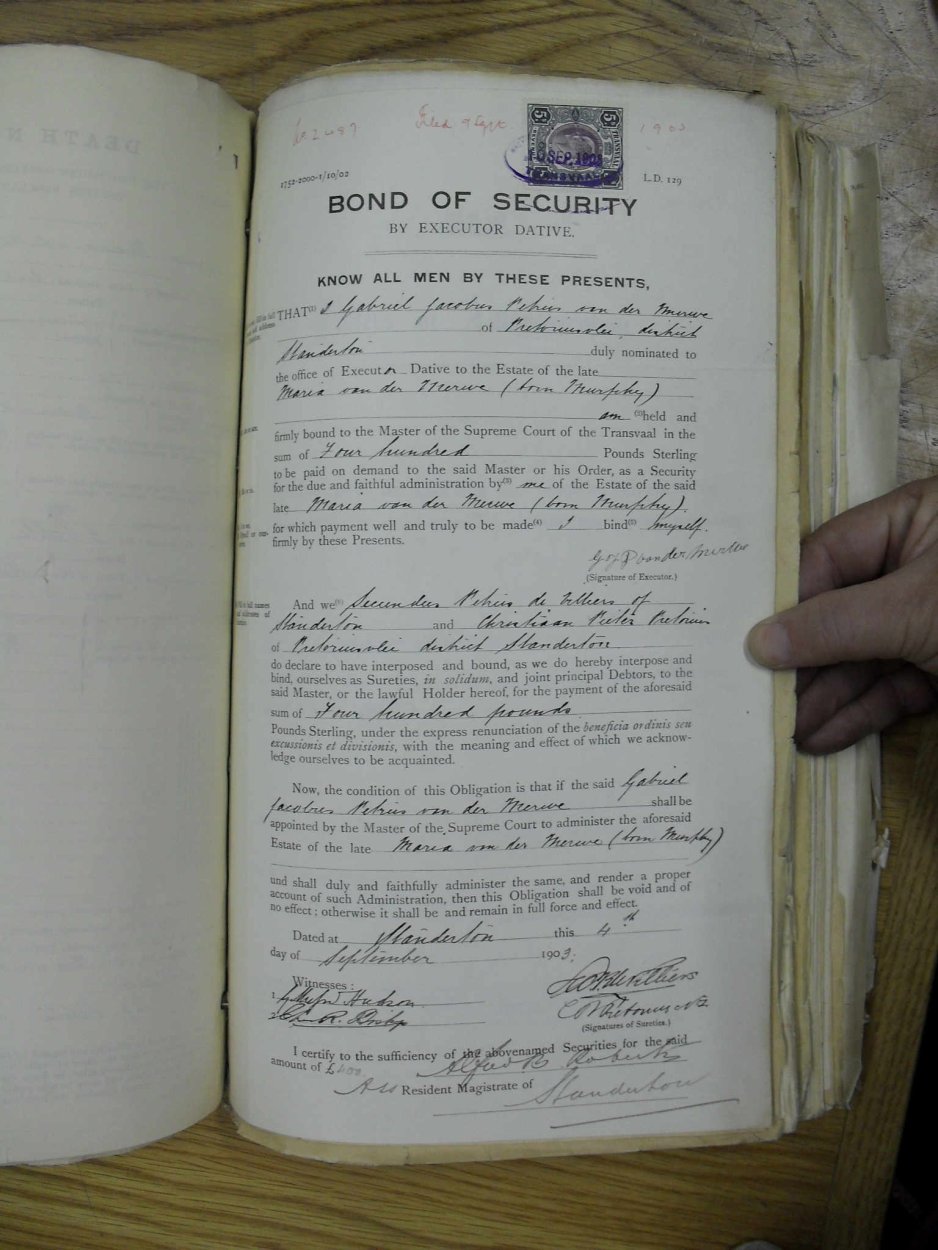 Filed 9 Sept. 1903
5s 5s
TRANSVAAL
SEP. 1903
TRANSVAAL
1752-2000-1/10/02
L.D. 129
BOND OF SECURITY
BY EXECUTOR DATIVE.
KNOW ALL MEN BY THESE PRESENTS,
THAT(1) I Gabriel Jacobus Petrus van der Merwe
of Pretoriusvlei, district
Standerton duly nominated to
the office of Executor Dative to the Estate of the late
Maria van der Merwe (born Murphy)
am (2)held and
firmly bound to the Master of the Supreme Court of the Transvaal in the
sum of Four hundred Pounds Sterling
to be paid on demand to the said Master or his Order, as a Security
for the due and faithful administration by(3) me of the Estate of the said
late Maria van der Merwe (born Murphy).
for which payment well and truly to be made(4) I bind(5) myself.
firmly by these Presents.
van der Merwe
(Signature of Executor.)
And we(6) Secundus Petrus de Villiers of
Standerton and Christiaan Pieter Pretorius
of Pretoriusvlei district Standerton
do declare to have interposed and bound, as we do hereby interpose and
bind, ourselves as Sureties, in solidum, and joint principal Debtors, to the
said Master, or the lawful Holder hereof, for the payment of the aforesaid
sum of Four hundred pounds
Pounds Sterling, under the express renunciation of the beneficia ordinis seu
excussionis et divisionis, with the meaning and effect of which we acknow-
ledge ourselves to be acquainted.
Now, the condition of this Obligation is that if the said Gabriel
Jacobus Petrus van der Merwe shall be
appointed by the Master of the Supreme Court to administer the aforesaid
Estate of the late Maria van der Merwe (born Murphy)
und shall duly and faithfully administer the same, and render a proper
account of such Administration, then this Obligation shall be void and of
no effect; otherwise it shall be and remain in full force and effect.
Dated at Standerton this 4th
day of September 1903.
Witnesses:
1. Hudson
2. R.
de Villiers
C P Pretorius
(Signatures of Sureties.)
I certify to the sufficiency of the abovenamed Securities for the said
amount of £400 Alfred B Roberts
Resident Magistrate of Standerton